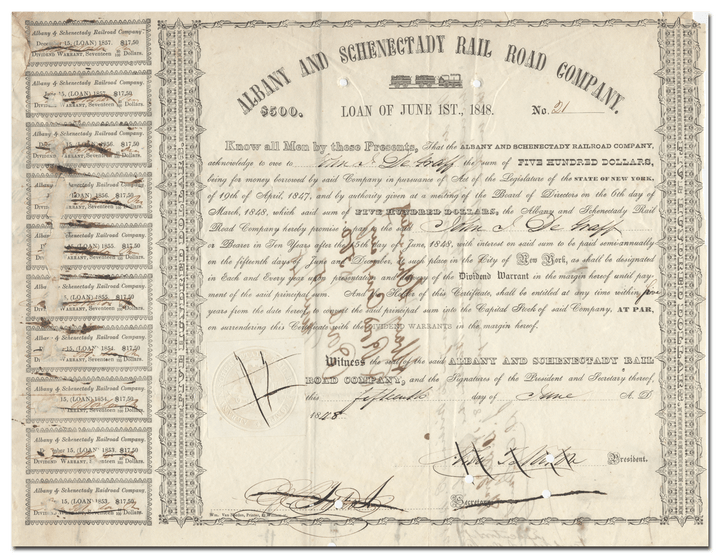 ALBANY AND SCHENECTADY RAIL ROAD COMPANY.
$500. LOAN OF JUNE 1ST., 1848. No. 21
Know all Men by these Presents, That the ALBANY AND SCHENECTADY RAILROAD COMPANY,
acknowledge to owe to John I. De Graff the sum of FIVE HUNDRED DOLLARS,
being for money borrowed by said Company in pursuance of Act of the Legislature of the STATE OF NEW YORK,
of 19th of April, 1847, and by authority given at a meeting of the Board of Directors on the 6th day of
March, 1848, which said sum of FIVE HUNDRED DOLLARS, the Albany and Schenectady Rail
Road Company hereby promise to pay the said John I. De Graff
or Bearer in Ten Years after the 15th day of June, 1848, with interest on said sum to be paid semi-annually
on the fifteenth days of June and December, at such place in the City of New York, as shall be designated
in Each and Every year upon presentation and of the Dividend Warrant in the margin hereof until pay-
ment of the said principal sum. And the Holder of this Certificate, shall be entitled at any time within five
years from the date hereof to convert the said principal sum into the Capital Stock of said Company, AT PAR,
on surrendering this Certificate with the DIVIDEND WARRANTS in the margin hereof.
Witness the seal of the said ALBANY AND SCHENECTADY RAIL
ROAD COMPANY, and the Signatures of the President and Secretary thereof,
this fifteenth day of June A. D
1848
President.
Secretary
Albany & Schenectady Railroad Company.
December 15, (LOAN) 1857. $17,50
DIVIDEND WARRANT, Seventeen Dollars.
Albany & Schenectady Railroad Company.
June 15, (LOAN) 1857. $17,50
DIVIDEND WARRANT, Seventeen Dollars.
Albany & Schenectady Railroad Company.
1856. $17,50
Seventeen Dollars.
Albany & Schenectady Railroad Company.
$17,50
WARRANT, Seventeen Dollars.
Albany & Schenectady Railroad Company.
$17,50
WARRANT, Seventeen Dollars.
Albany & Schenectady Railroad Company.
15, (LOAN) 1855. $17,50
Seventeen Dollars.
Albany & Schenectady Railroad Company.
15, (LOAN) 1854. $17,50
Seventeen Dollars.
Albany & Schenectady Railroad Company.
15, (LOAN) 1854. $17,50
Seventeen Dollars.
Albany & Schenectady Railroad Company.
15, (LOAN) 1853. $17,50
DIVIDEND WARRANT, Dollars.
Albany & Schenectady Railroad Company.
15, (LOAN) 1853. $17,50
DIVIDEND WARRANT, Seventeen Dollars.